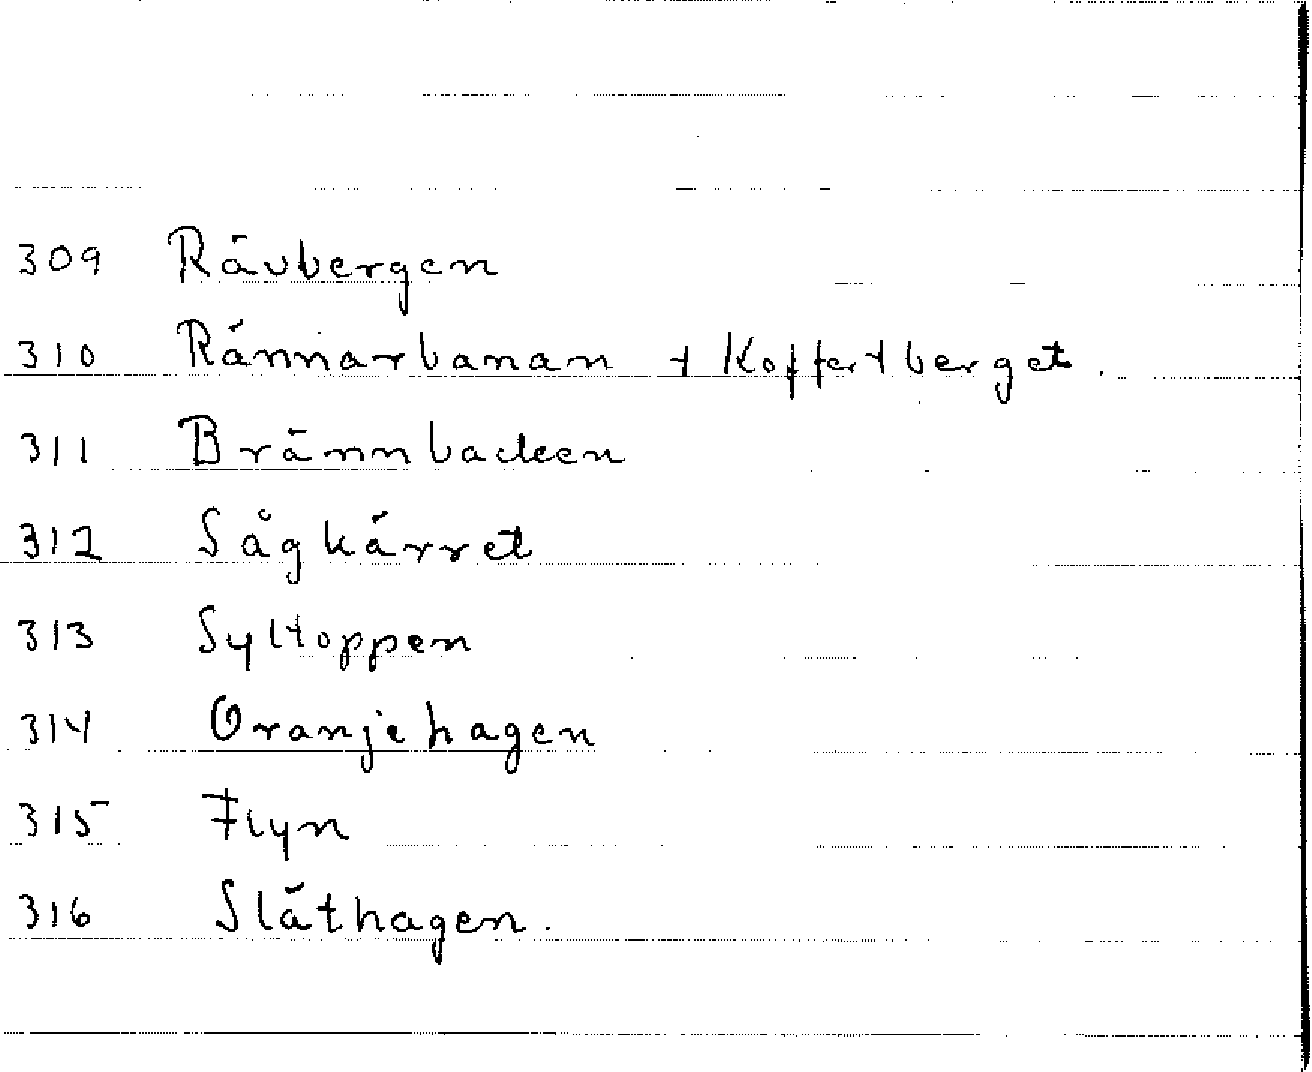 309 Rävbergen
310 Rännarbanan + Koffertberget.
311 Brännbacken
312 Sågkärret
313 Syltoppen
314 Oranjehagen
315 Flyn
316 Släthagen.